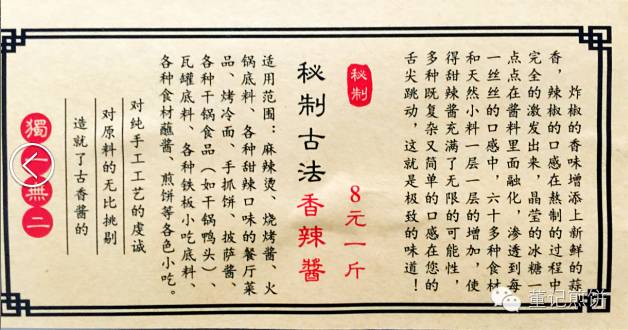 炸椒的香味增添上新鲜的蒜
香，辣椒的口感在熬制的过程中
完全的激发出来，晶莹的冰糖一
点点在酱料里面融化，渗透到每
一丝丝的口感中，六十多种食材
和天然小料一层一层的增加，使
得甜辣酱充满了无限的可能性，
多种既复杂又简单的口感在您的
舌尖跳动，这就是极致的味道！
秘制
8元一斤
秘制古法香辣醬
适用范围：麻辣烫、烧烤酱、火
锅底料、各种甜辣口味的餐厅菜
品、烤冷面、手抓饼、披萨酱、
各种干锅食品（如干锅鸭头）、
瓦罐底料、各种铁板小吃底料、
各种食材蘸酱、煎饼等各色小吃。
对纯手工工艺的虔诚
对原料的无比挑剔
造就了古香酱的
獨一無二
董记煎饼